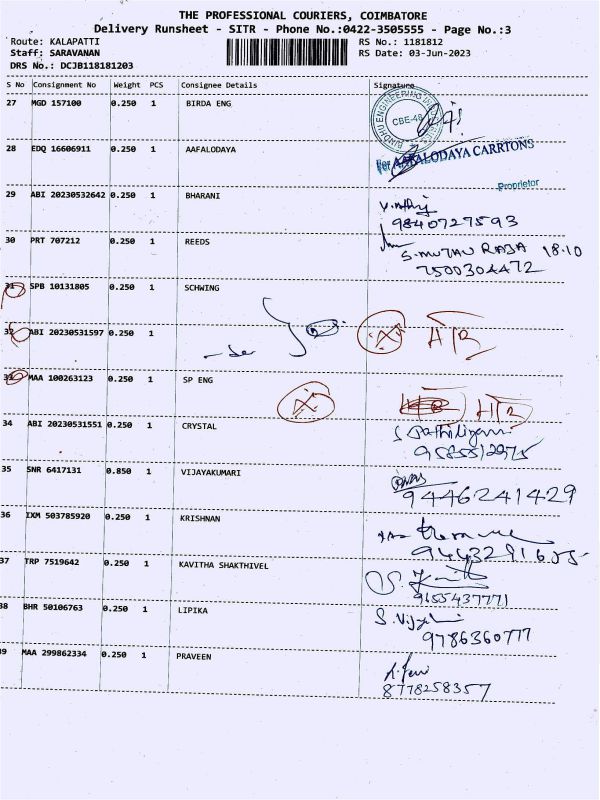 THE PROFESSIONAL COURIERS, COIMBATORE
Delivery Runsheet - SITR - Phone No.:0422-3505555 - Page No.:3
Route: KALAPATTI RS No.: 1181812
Staff: SARAVANAN RS Date: 03-Jun-2023
DRS No.: DCJB118181203
S No Consignment No Weight PCS Consignee Details Signature
27 MGD 157100 0.250 1 BIRDA ENG
CBE-48
28 EDQ 16606911 0.250 1 AAFALODAYA
For AAFALODAYA CARRTONS
Proprietor
29 ABI 20230532642 0.250 1 BHARANI
9840727593
30 PRT 707212 0.250 1 REEDS
S. MUTHU RAJA 18.10
7500304472
31 SPB 10131805 0.250 1 SCHWING
32 ABI 20230531597 0.250 1
33 MAA 100263123 0.250 1 SP ENG
34 ABI 20230531551 0.250 1 CRYSTAL
35 SNR 6417131 0.850 1 VIJAYAKUMARI
9446241429
36 IXM 503785920 0.250 1 KRISHNAN
37 TRP 7519642 0.250 1 KAVITHA SHAKTHIVEL
9655437771
38 BHR 50106763 0.250 1 LIPIKA
9786360777
39 MAA 299862334 0.250 1 PRAVEEN
8778258357